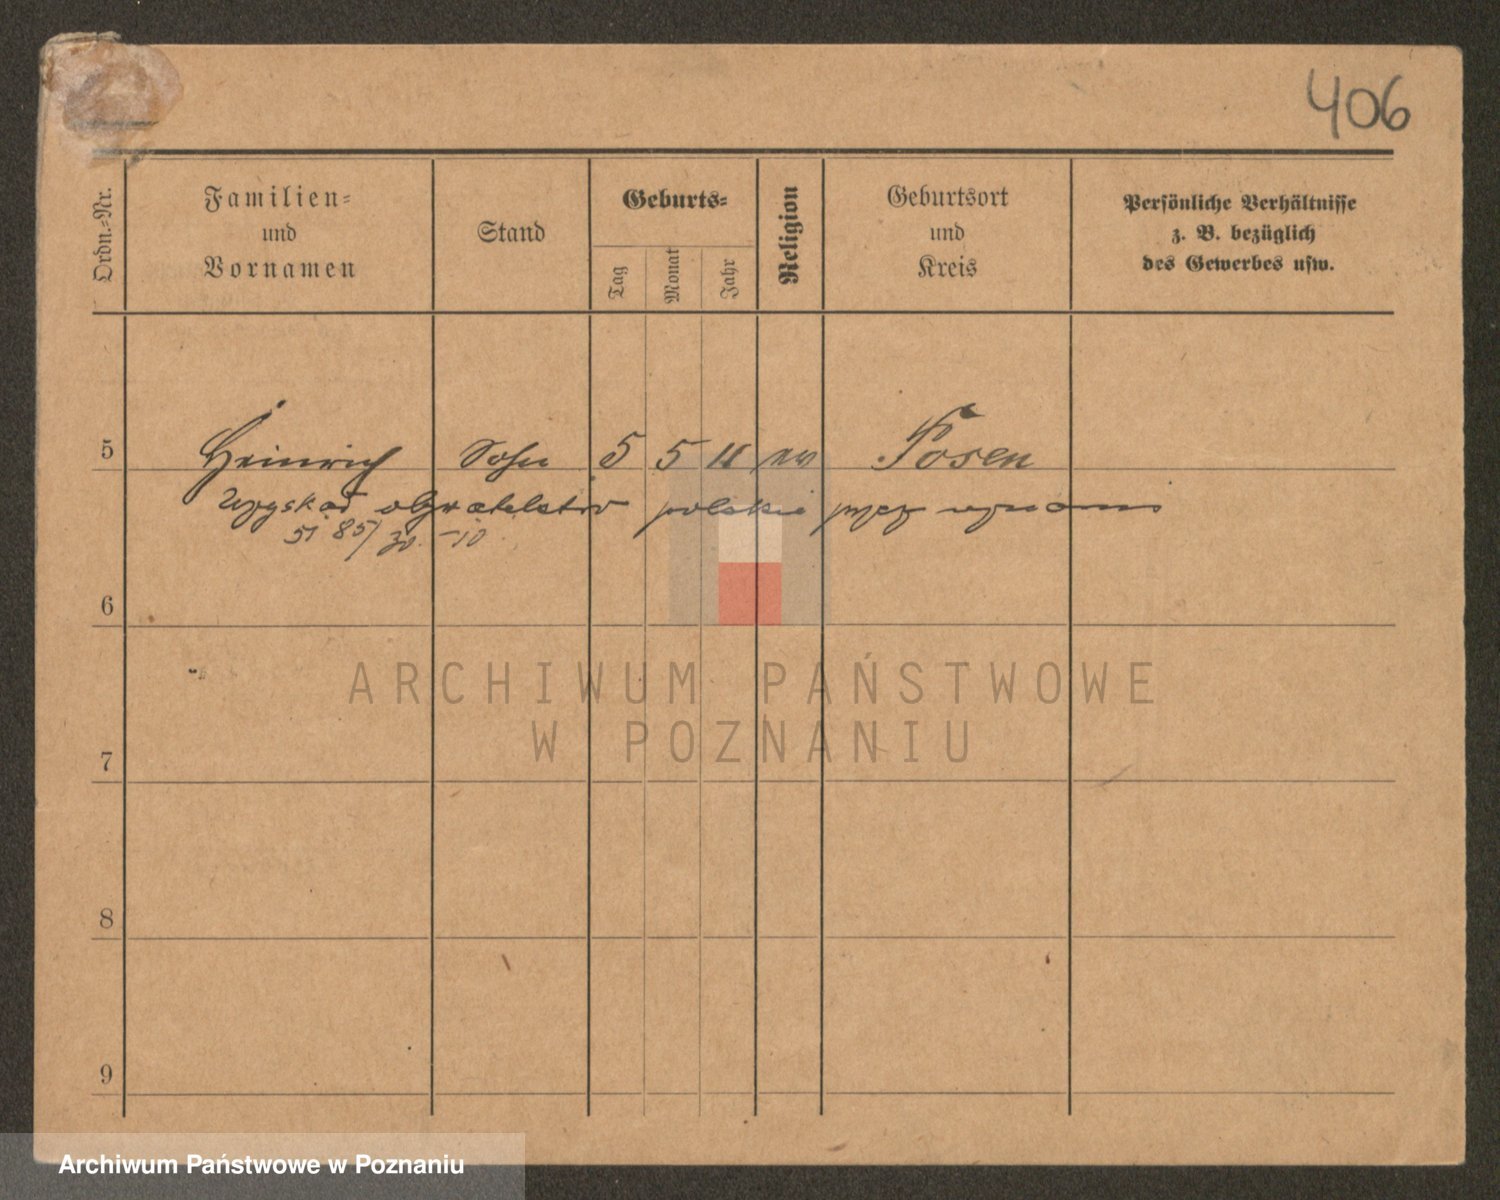 406
Ordn.-Nr.
Familien-
und
Vornamen
Stand
Geburts-
Tag
Monat
Jahr
Religion
Geburtsort
und
Kreis
Persönliche Verhältnisse
z. B. bezüglich
des Gewerbes usw.
5 Heinrich Sohn 5 5 11 ev Posen
Uzyskał obywatelstwo polskie przez
51 85/30 -10
6
ARCHIWUM PAŃSTWOWE
W POZNANIU
7
8
9
Archiwum Państwowe w Poznaniu